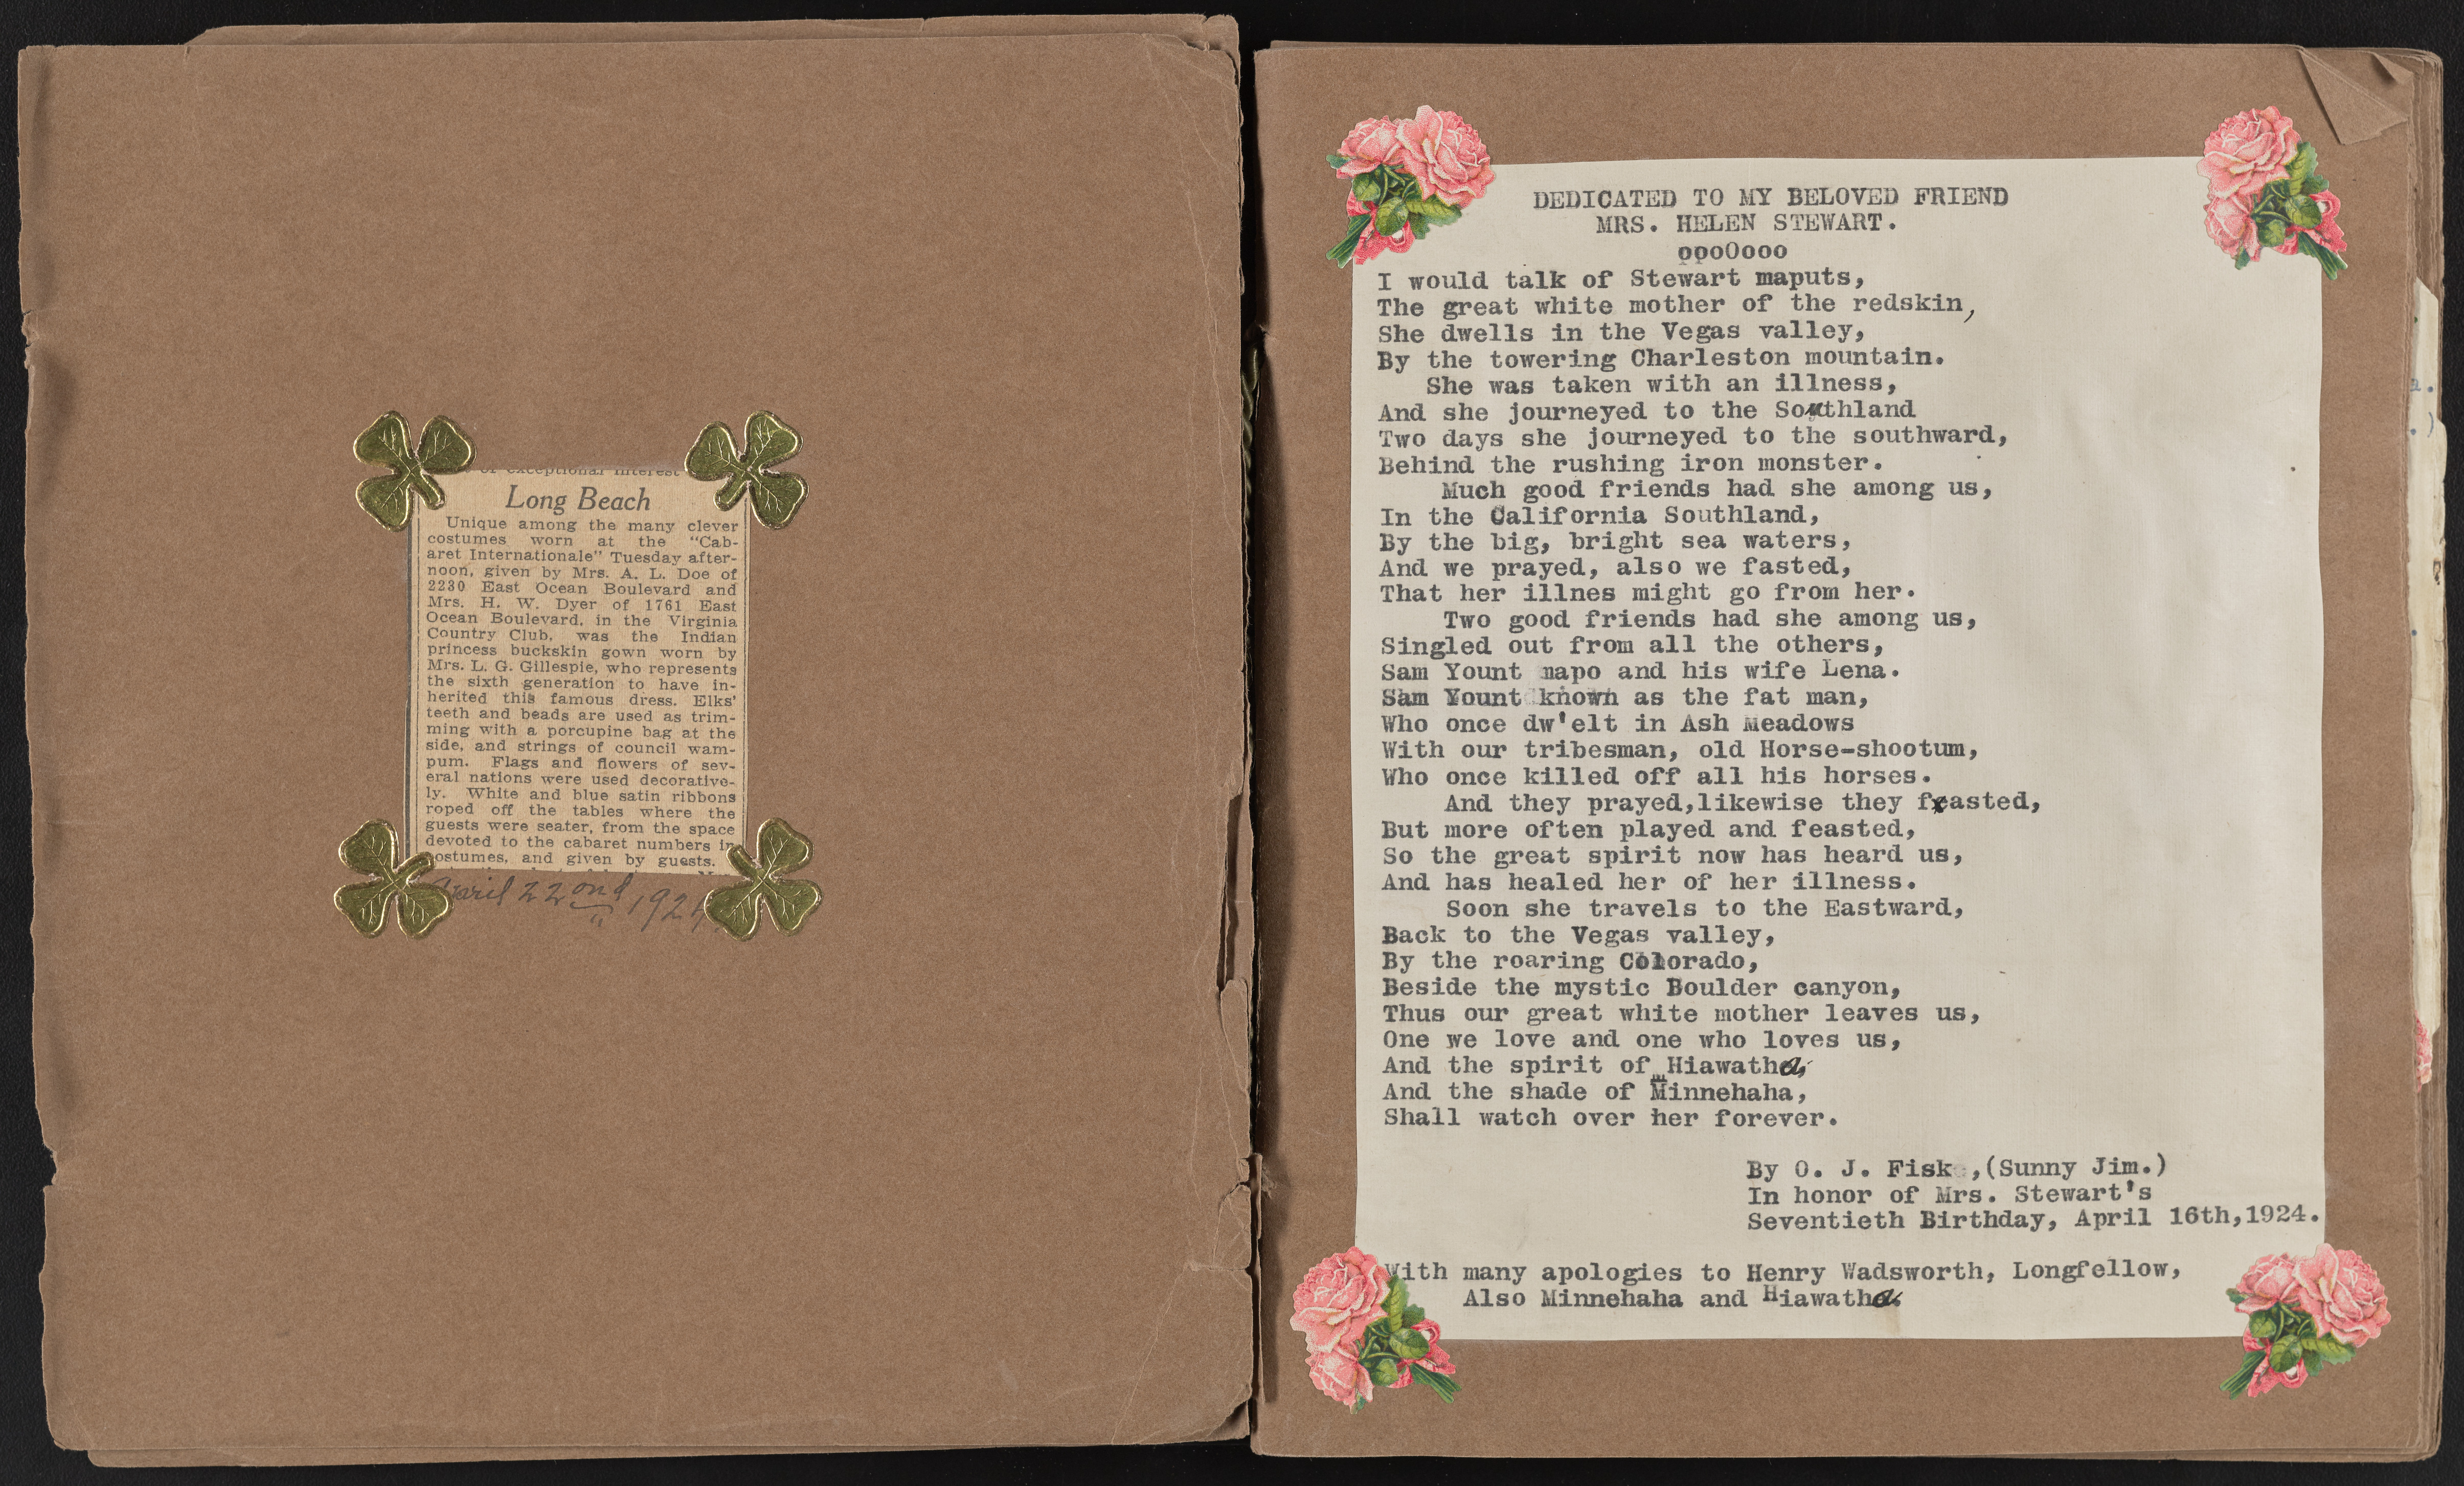 of exceptional interest
Long Beach
Unique among the many clever
costumes worn at the "Cab-
aret Internationale" Tuesday after-
noon, given by Mrs. A. L. Doe of
2230 East Ocean Boulevard and
Mrs. H. W. Dyer of 1761 East
Ocean Boulevard, in the Virginia
Country Club, was the Indian
princess buckskin gown worn by
Mrs. L. G. Gillespie, who represents
the sixth generation to have in-
herited this famous dress. Elks'
teeth and beads are used as trim-
ming with a porcupine bag at the
side, and strings of council wam-
pum. Flags and flowers of sev-
eral nations were used decorative-
ly. White and blue satin ribbons
roped off the tables where the
guests were seater, from the space
devoted to the cabaret numbers in
costumes, and given by guests.
April 22 ond, 1924
DEDICATED TO MY BELOVED FRIEND
MRS. HELEN STEWART.
ppoOooo
I would talk of Stewart maputs,
The great white mother of the redskin,
She dwells in the Vegas valley,
By the towering Charleston mountain.
She was taken with an illness,
And she journeyed to the Southland
Two days she journeyed to the southward,
Behind the rushing iron monster.
Much good friends had she among us,
In the California Southland,
By the big, bright sea waters,
And we prayed, also we fasted,
That her illnes might go from her.
Two good friends had she among us,
Singled out from all the others,
Sam Yount mapo and his wife Lena.
Sam Yount known as the fat man,
Who once dw'elt in Ash Meadows
With our tribesman, old Horse-shootum,
Who once killed off all his horses.
And they prayed,likewise they fasted,
But more often played and feasted,
So the great spirit now has heard us,
And has healed her of her illness.
Soon she travels to the Eastward,
Back to the Vegas valley,
By the roaring Colorado,
Beside the mystic Boulder canyon,
Thus our great white mother leaves us,
One we love and one who loves us,
And the spirit of Hiawatha,
And the shade of Minnehaha,
Shall watch over her forever.
By O. J. Fisk ,(Sunny Jim.)
In honor of Mrs. Stewart's
Seventieth Birthday, April 16th,1924.
With many apologies to Henry Wadsworth, Longfellow,
Also Minnehaha and Hiawatha.